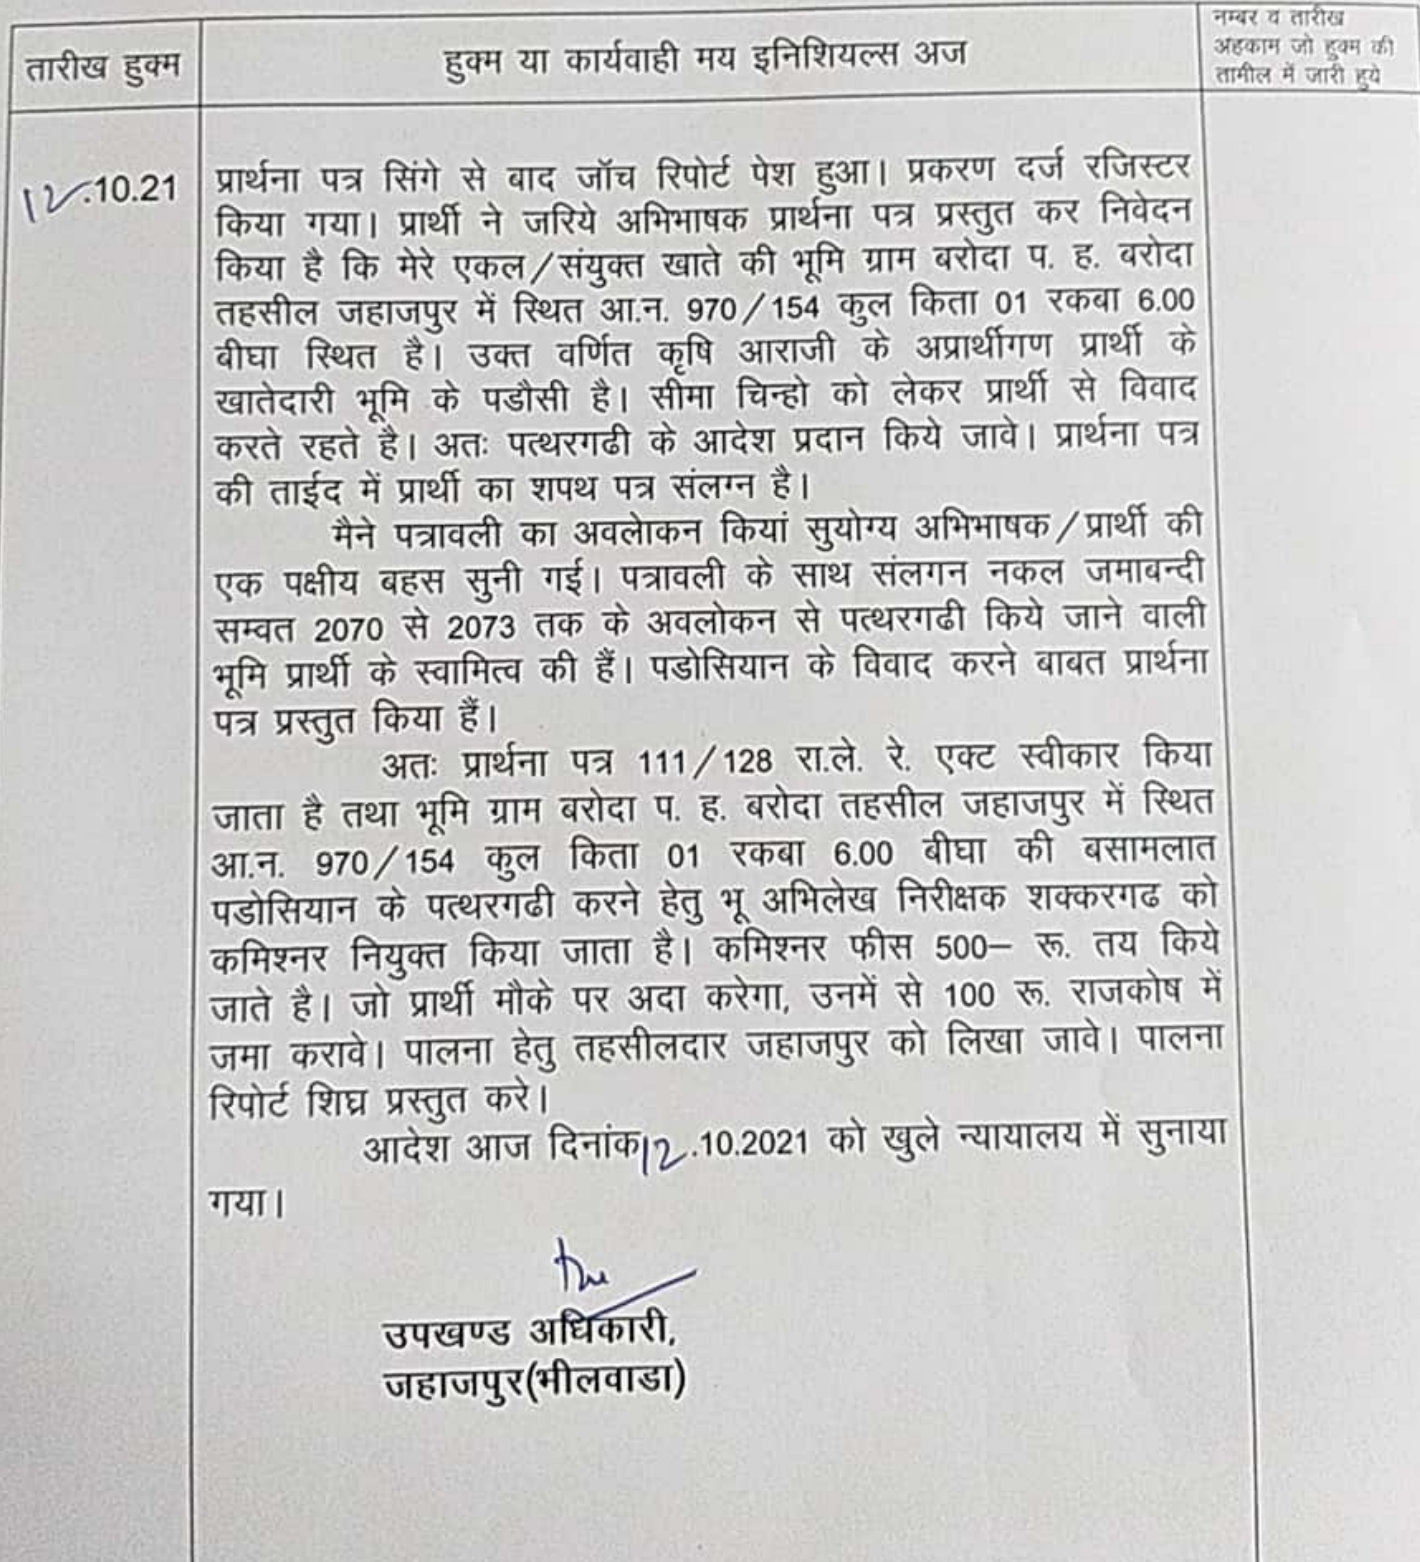 तारीख हुक्म
हुक्म या कार्यवाही मय इनिशियल्स अज
नम्बर व तारीख
अहकाम जो हुक्म की
तामील में जारी हुये
12.10.21
प्रार्थना पत्र सिंगे से बाद जॉच रिपोर्ट पेश हुआ। प्रकरण दर्ज रजिस्टर
किया गया। प्रार्थी ने जरिये अभिभाषक प्रार्थना पत्र प्रस्तुत कर निवेदन
किया है कि मेरे एकल/संयुक्त खाते की भूमि ग्राम बरोदा प. ह. बरोदा
तहसील जहाजपुर में स्थित आ.न. 970/154 कुल किता 01 रकबा 6.00
बीघा स्थित है। उक्त वर्णित कृषि आराजी के अप्रार्थीगण प्रार्थी के
खातेदारी भूमि के पडौसी है। सीमा चिन्हो को लेकर प्रार्थी से विवाद
करते रहते है। अतः पत्थरगढी के आदेश प्रदान किये जावे। प्रार्थना पत्र
की ताईद में प्रार्थी का शपथ पत्र संलग्न है।
मैने पत्रावली का अवलोकन कियां सुयोग्य अभिभाषक/प्रार्थी की
एक पक्षीय बहस सुनी गई। पत्रावली के साथ संलगन नकल जमाबन्दी
सम्वत 2070 से 2073 तक के अवलोकन से पत्थरगढी किये जाने वाली
भूमि प्रार्थी के स्वामित्व की हैं। पडोसियान के विवाद करने बाबत प्रार्थना
पत्र प्रस्तुत किया हैं।
अतः प्रार्थना पत्र 111/128 रा.ले. रे. एक्ट स्वीकार किया
जाता है तथा भूमि ग्राम बरोदा प. ह. बरोदा तहसील जहाजपुर में स्थित
आ.न. 970/154 कुल किता 01 रकबा 6.00 बीघा की बसामलात
पडोसियान के पत्थरगढी करने हेतु भू अभिलेख निरीक्षक शक्करगढ को
कमिश्नर नियुक्त किया जाता है। कमिश्नर फीस 500– रू. तय किये
जाते है। जो प्रार्थी मौके पर अदा करेगा, उनमें से 100 रू. राजकोष में
जमा करावे। पालना हेतु तहसीलदार जहाजपुर को लिखा जावे। पालना
रिपोर्ट शिघ्र प्रस्तुत करे।
आदेश आज दिनांक 12.10.2021 को खुले न्यायालय में सुनाया
गया।
उपखण्ड अधिकारी,
जहाजपुर(भीलवाडा)